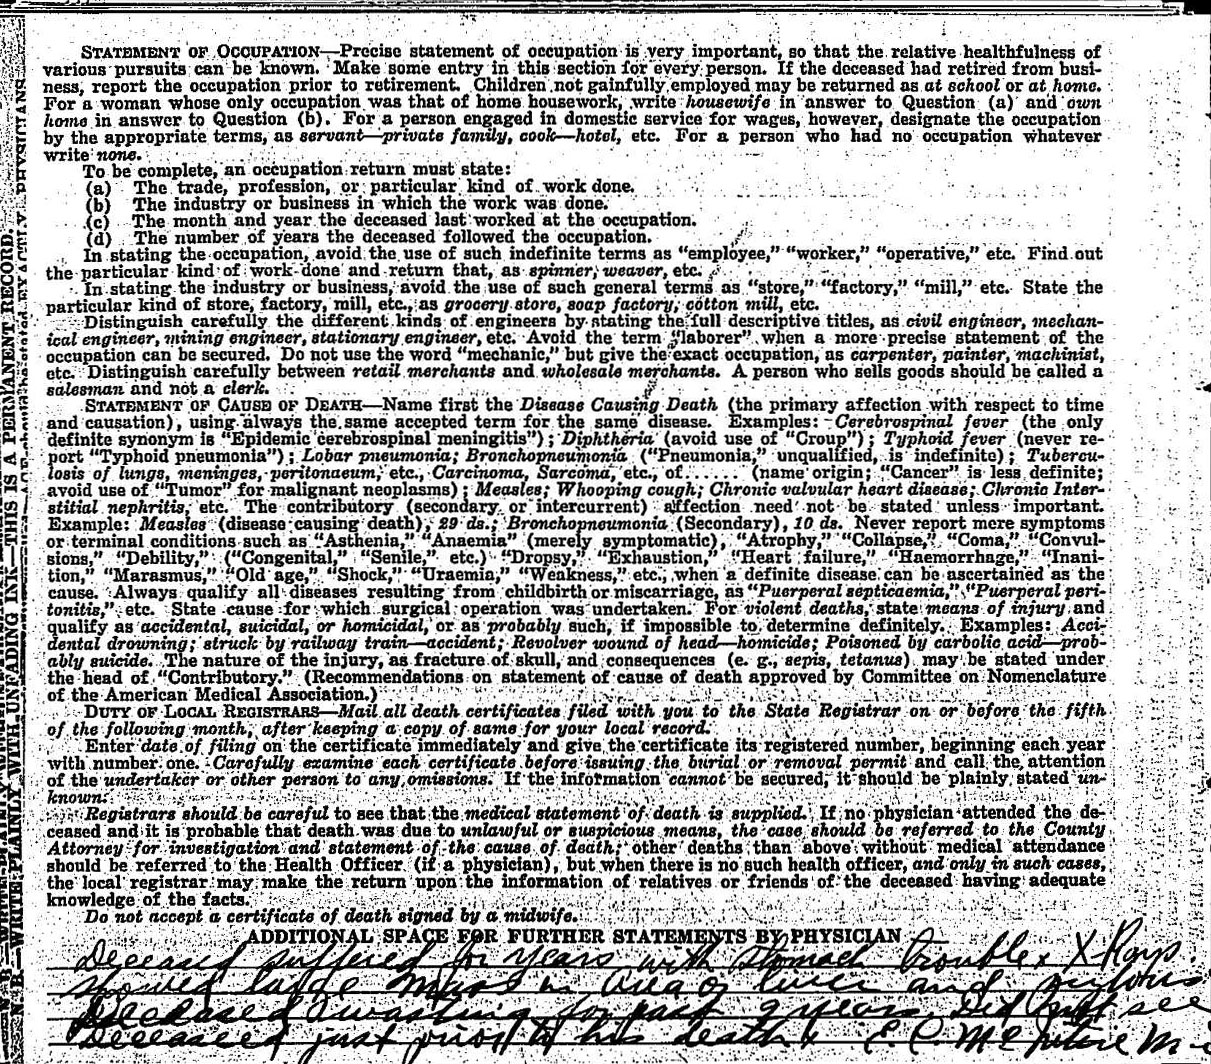 STATEMENT OF OCCUPATION—Precise statement of occupation is very important, so that the relative healthfulness of
various pursuits can be known. Make some entry in this section for every person. If the deceased had retired from busi-
ness, report the occupation prior to retirement. Children not gainfully employed may be returned as at school or at home.
For a woman whose only occupation was that of home housework, write housewife in answer to Question (a) and own
home in answer to Question (b). For a person engaged in domestic service for wages, however, designate the occupation
by the appropriate terms, as servant—private family, cook—hotel, etc. For a person who had no occupation whatever
write none.
To be complete, an occupation return must state:
(a) The trade, profession, or particular kind of work done.
(b) The industry or business in which the work was done.
(c) The month and year the deceased last worked at the occupation.
(d) The number of years the deceased followed the occupation.
In stating the occupation, avoid the use of such indefinite terms as “employee,” “worker,” “operative,” etc. Find out
the particular kind of work done and return that, as spinner, weaver, etc.
In stating the industry or business, avoid the use of such general terms as “store,” “factory,” “mill,” etc. State the
particular kind of store, factory, mill, etc., as grocery store, soap factory, cotton mill, etc.
Distinguish carefully the different kinds of engineers by stating the full descriptive titles, as civil engineer, mechan-
ical engineer, mining engineer, stationary engineer, etc. Avoid the term “laborer” when a more precise statement of the
occupation can be secured. Do not use the word “mechanic,” but give the exact occupation, as carpenter, painter, machinist,
etc. Distinguish carefully between retail merchants and wholesale merchants. A person who sells goods should be called a
salesman and not a clerk.
STATEMENT OF CAUSE OF DEATH—Name first the Disease Causing Death (the primary affection with respect to time
and causation), using always the same accepted term for the same disease. Examples: Cerebrospinal fever (the only
definite synonym is “Epidemic cerebrospinal meningitis”); Diphtheria (avoid use of “Croup”); Typhoid fever (never re-
port “Typhoid pneumonia”); Lobar pneumonia; Bronchopneumonia (“Pneumonia,” unqualified, is indefinite); Tubercu-
losis of lungs, meninges, peritonaeum, etc., Carcinoma, Sarcoma, etc., of...... (name origin; “Cancer” is less definite;
avoid use of “Tumor” for malignant neoplasms); Measles; Whooping cough; Chronic valvular heart disease; Chronic Inter-
stitial nephritis, etc. The contributory (secondary or intercurrent) affection need not be stated unless important.
Example: Measles (disease causing death), 29 ds.; Bronchopneumonia (Secondary), 10 ds. Never report mere symptoms
or terminal conditions such as “Asthenia,” “Anaemia” (merely symptomatic), “Atrophy,” “Collapse,” “Coma,” “Convul-
sions,” “Debility,” (“Congenital,” “Senile,” etc.) “Dropsy,” “Exhaustion,” “Heart failure,” “Haemorrhage,” “Inani-
tion,” “Marasmus,” “Old age,” “Shock,” “Uraemia,” “Weakness,” etc., when a definite disease can be ascertained as the
cause. Always qualify all diseases resulting from childbirth or miscarriage, as “Puerperal septicaemia,” “Puerperal peri-
tonitis,” etc. State cause for which surgical operation was undertaken. For violent deaths, state means of injury and
qualify as accidental, suicidal, or homicidal, or as probably such, if impossible to determine definitely. Examples: Acci-
dental drowning; struck by railway train—accident; Revolver wound of head—homicide; Poisoned by carbolic acid—prob-
ably suicide. The nature of the injury, as fracture of skull, and consequences (e. g., sepis, tetanus) may be stated under
the head of “Contributory.” (Recommendations on statement of cause of death approved by Committee on Nomenclature
of the American Medical Association.)
DUTY OF LOCAL REGISTRARS—Mail all death certificates filed with you to the State Registrar on or before the fifth
of the following month, after keeping a copy of same for your local record.
Enter date of filing on the certificate immediately and give the certificate its registered number, beginning each year
with number one. Carefully examine each certificate before issuing the burial or removal permit and call the attention
of the undertaker or other person to any omissions. If the information cannot be secured, it should be plainly stated un-
known.
Registrars should be careful to see that the medical statement of death is supplied. If no physician attended the de-
ceased and it is probable that death was due to unlawful or suspicious means, the case should be referred to the County
Attorney for investigation and statement of the cause of death; other deaths than above without medical attendance
should be referred to the Health Officer (if a physician), but when there is no such health officer, and only in such cases,
the local registrar may make the return upon the information of relatives or friends of the deceased having adequate
knowledge of the facts.
Do not accept a certificate of death signed by a midwife.
ADDITIONAL SPACE FOR FURTHER STATEMENTS BY PHYSICIAN
Deceased suffered for years with stomach trouble. X-Rays
showed large mass in area of liver and pylorus
Deceased wasting for past 2 years. Did not see
Deceased just prior to his death E. C. M
N. B.—WRITE PLAINLY WITH UNFADING INK—THIS IS A PERMANENT RECORD.
PHYSICIANS